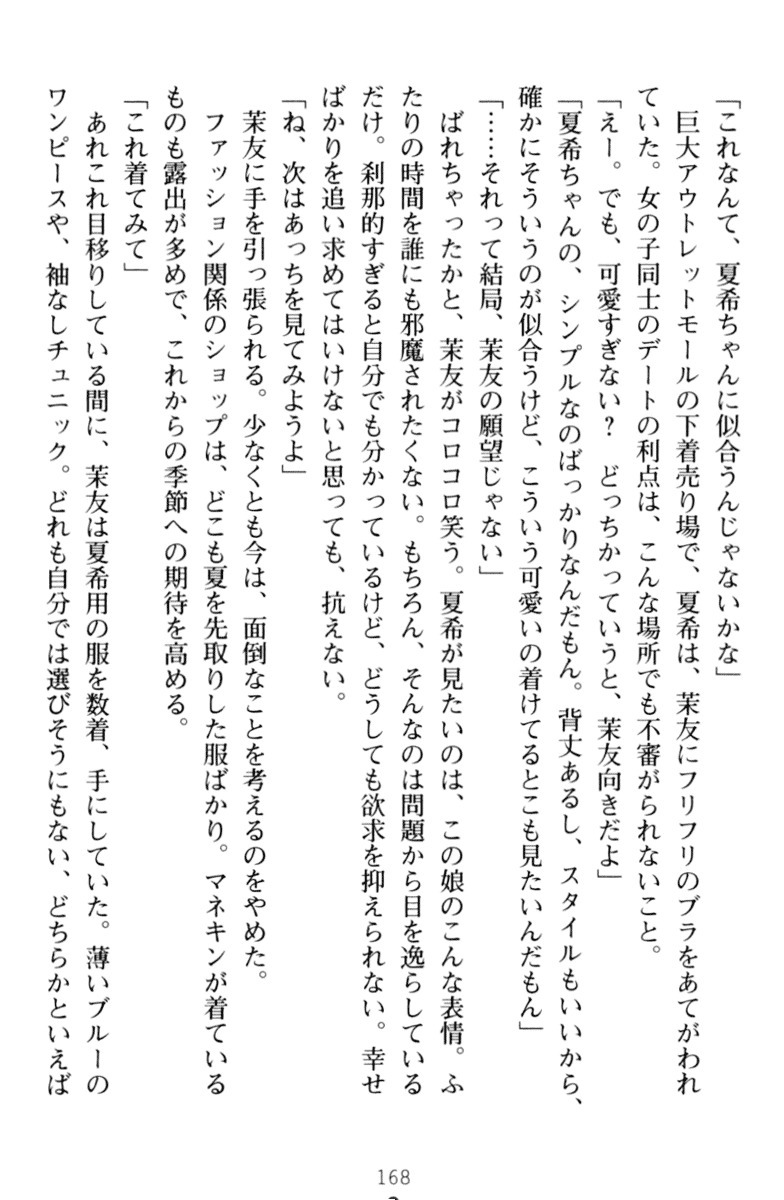 「これなんて、夏希ちゃんに似合うんじゃないかな」
　巨大アウトレットモールの下着売り場で、夏希は、茉友にフリフリのブラをあてがわれ
ていた。女の子同士のデートの利点は、こんな場所でも不審がられないこと。
「えー。でも、可愛すぎない？　どっちかっていうと、茉友向きだよ」
「夏希ちゃんの、シンプルなのばっかりなんだもん。背丈あるし、スタイルもいいから、
確かにそういうのが似合うけど、こういう可愛いの着けてるとこも見たいんだもん」
「……それって結局、茉友の願望じゃない」
　ばれちゃったかと、茉友がコロコロ笑う。夏希が見たいのは、この娘のこんな表情。ふ
たりの時間を誰にも邪魔されたくない。もちろん、そんなのは問題から目を逸らしている
だけ。刹那的すぎると自分でも分かっているけど、どうしても欲求を抑えられない。幸せ
ばかりを追い求めてはいけないと思っても、抗えない。
「ね、次はあっちを見てみようよ」
　茉友に手を引っ張られる。少なくとも今は、面倒なことを考えるのをやめた。
　ファッション関係のショップは、どこも夏を先取りした服ばかり。マネキンが着ている
ものも露出が多めで、これからの季節への期待を高める。
「これ着てみて」
　あれこれ目移りしている間に、茉友は夏希用の服を数着、手にしていた。薄いブルーの
ワンピースや、袖なしチュニック。どれも自分では選びそうにもない、どちらかといえば
168